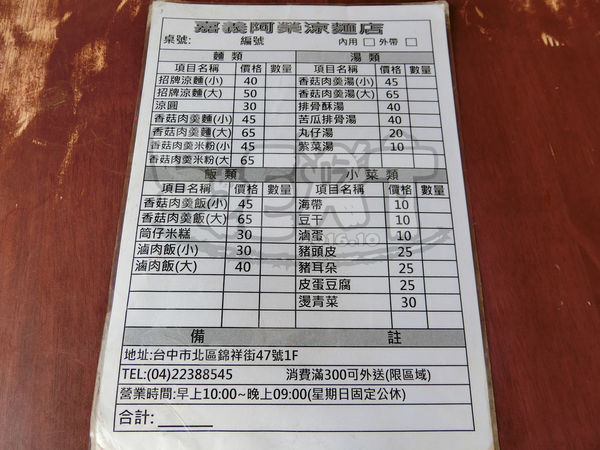 嘉義阿榮涼麵店
桌號: 編號 內用 □ 外帶 □
麵類 湯類
項目名稱 價格 數量 項目名稱 價格 數量
招牌涼麵(小) 40 香菇肉羹湯(小) 45
招牌涼麵(大) 50 香菇肉羹湯(大) 65
涼圓 30 排骨酥湯 40
香菇肉羹麵(小) 45 苦瓜排骨湯 40
香菇肉羹麵(大) 65 丸仔湯 20
香菇肉羹米粉(小 45 紫菜湯 10
香菇肉羹米粉(大 65
飯類 小菜類
項目名稱 價格 數量 項目名稱 價格 數量
香菇肉羹飯(小) 45 海帶 10
香菇肉羹飯(大) 65 豆干 10
筒仔米糕 30 滷蛋 10
滷肉飯(小) 30 豬頭皮 25
滷肉飯(大) 40 豬耳朵 25
皮蛋豆腐 25
燙青菜 30
備註
地址:台中市北區錦祥街47號1F
TEL:(04)22388545 消費滿300可外送(限區域)
營業時間:早上10:00~晚上09:00(星期日固定公休)
合計:______